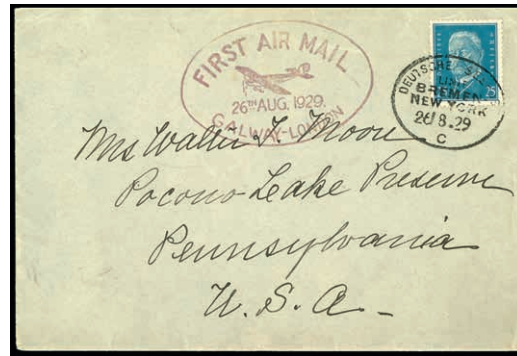 FIRST AIR MAIL
26TH AUG. 1929.
GALWAY-LONDON
25
DEUTSCHE
BREMEN
NEW YORK
26/8.29
C
Mrs Walter T. Moore
Pocono Lake Preserve
Pennsylvania
U.S.A.